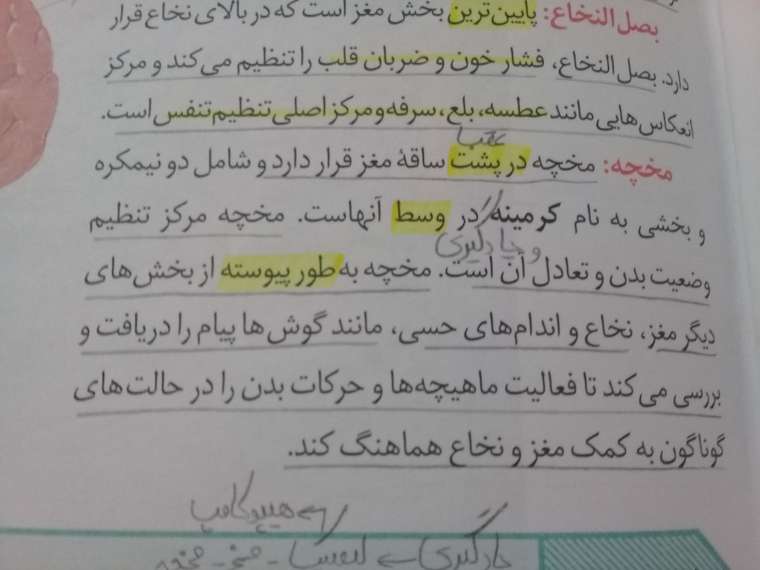 بصل النخاع: پایین‌ترین بخش مغز است که در بالای نخاع قرار
دارد. بصل النخاع، فشار خون و ضربان قلب را تنظیم می‌کند و مرکز
انعکاس‌هایی مانند عطسه، بلع، سرفه و مرکز اصلی تنظیم تنفس است.
عقب
مخچه: مخچه در پشت ساقهٔ مغز قرار دارد و شامل دو نیمکره
و بخشی به نام کرمینه در وسط آنهاست. مخچه مرکز تنظیم
و یادگیری
وضعیت بدن و تعادل آن است. مخچه به طور پیوسته از بخش‌های
دیگر مغز، نخاع و اندام‌های حسی، مانند گوش‌ها پیام را دریافت و
بررسی می‌کند تا فعالیت ماهیچه‌ها و حرکات بدن را در حالت‌های
گوناگون به کمک مغز و نخاع هماهنگ کند.
هیپوکامپ
یادگیری